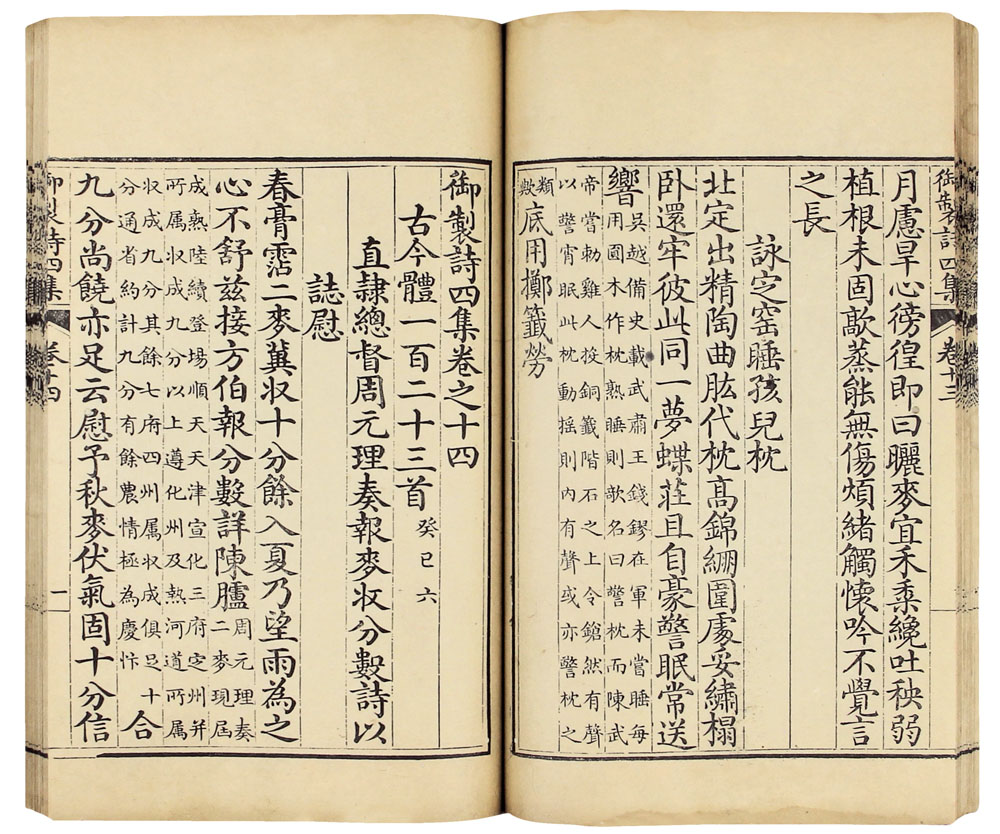 御製詩四集 卷十三
月慮旱心徬徨即曰曬麥宜禾黍纔吐秧弱
植根未固歊蒸能無傷煩緒觸懷吟不覺言
之長
詠定窑睡孩兒枕
北定出精陶曲肱代枕高錦綳圍處妥繡榻
臥還牢彼此同一夢蝶莊且自豪警眠常送
響吳越備史載武肅王錢鏐在軍未嘗睡每
用圓木作枕熟睡則欹名曰警枕而陳武
帝嘗勅雞人投銅籤階石之上令鎗然有聲
以警宵眠此枕動摇則内有聲或亦警枕之
類歟底用擲籤勞
御製詩四集卷之十四
古今體一百二十三首癸巳六
直隸總督周元理奏報麥收分數詩以
誌慰
春膏霑二麥冀收十分餘入夏乃望雨為之
心不舒兹接方伯報分數詳陳臚周元理奏
二麥現屆
成熟陸續登場順天天津宣化三府定州并
所属收成九分以上遵化州及熱河道所属
收成九分其餘七府四州属收成俱足十
分通省約計九分有餘農情極為慶忭合
九分尚饒亦足云慰予秋麥伏氣固十分信
御製詩四集 卷十四 一